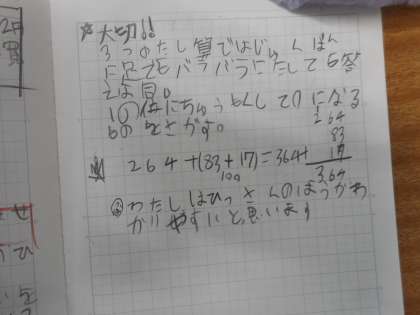 ☆大切!!
3つのたし算ではじゅんばん
に足してもバラバラにたしても答
えは同。
1の位にちゅうもくして0になる
ものをさがす。
264+(83+17)=364
100
264
83
+ 17
364
わたしはひっさんのほうがわ
かりやすいと思います